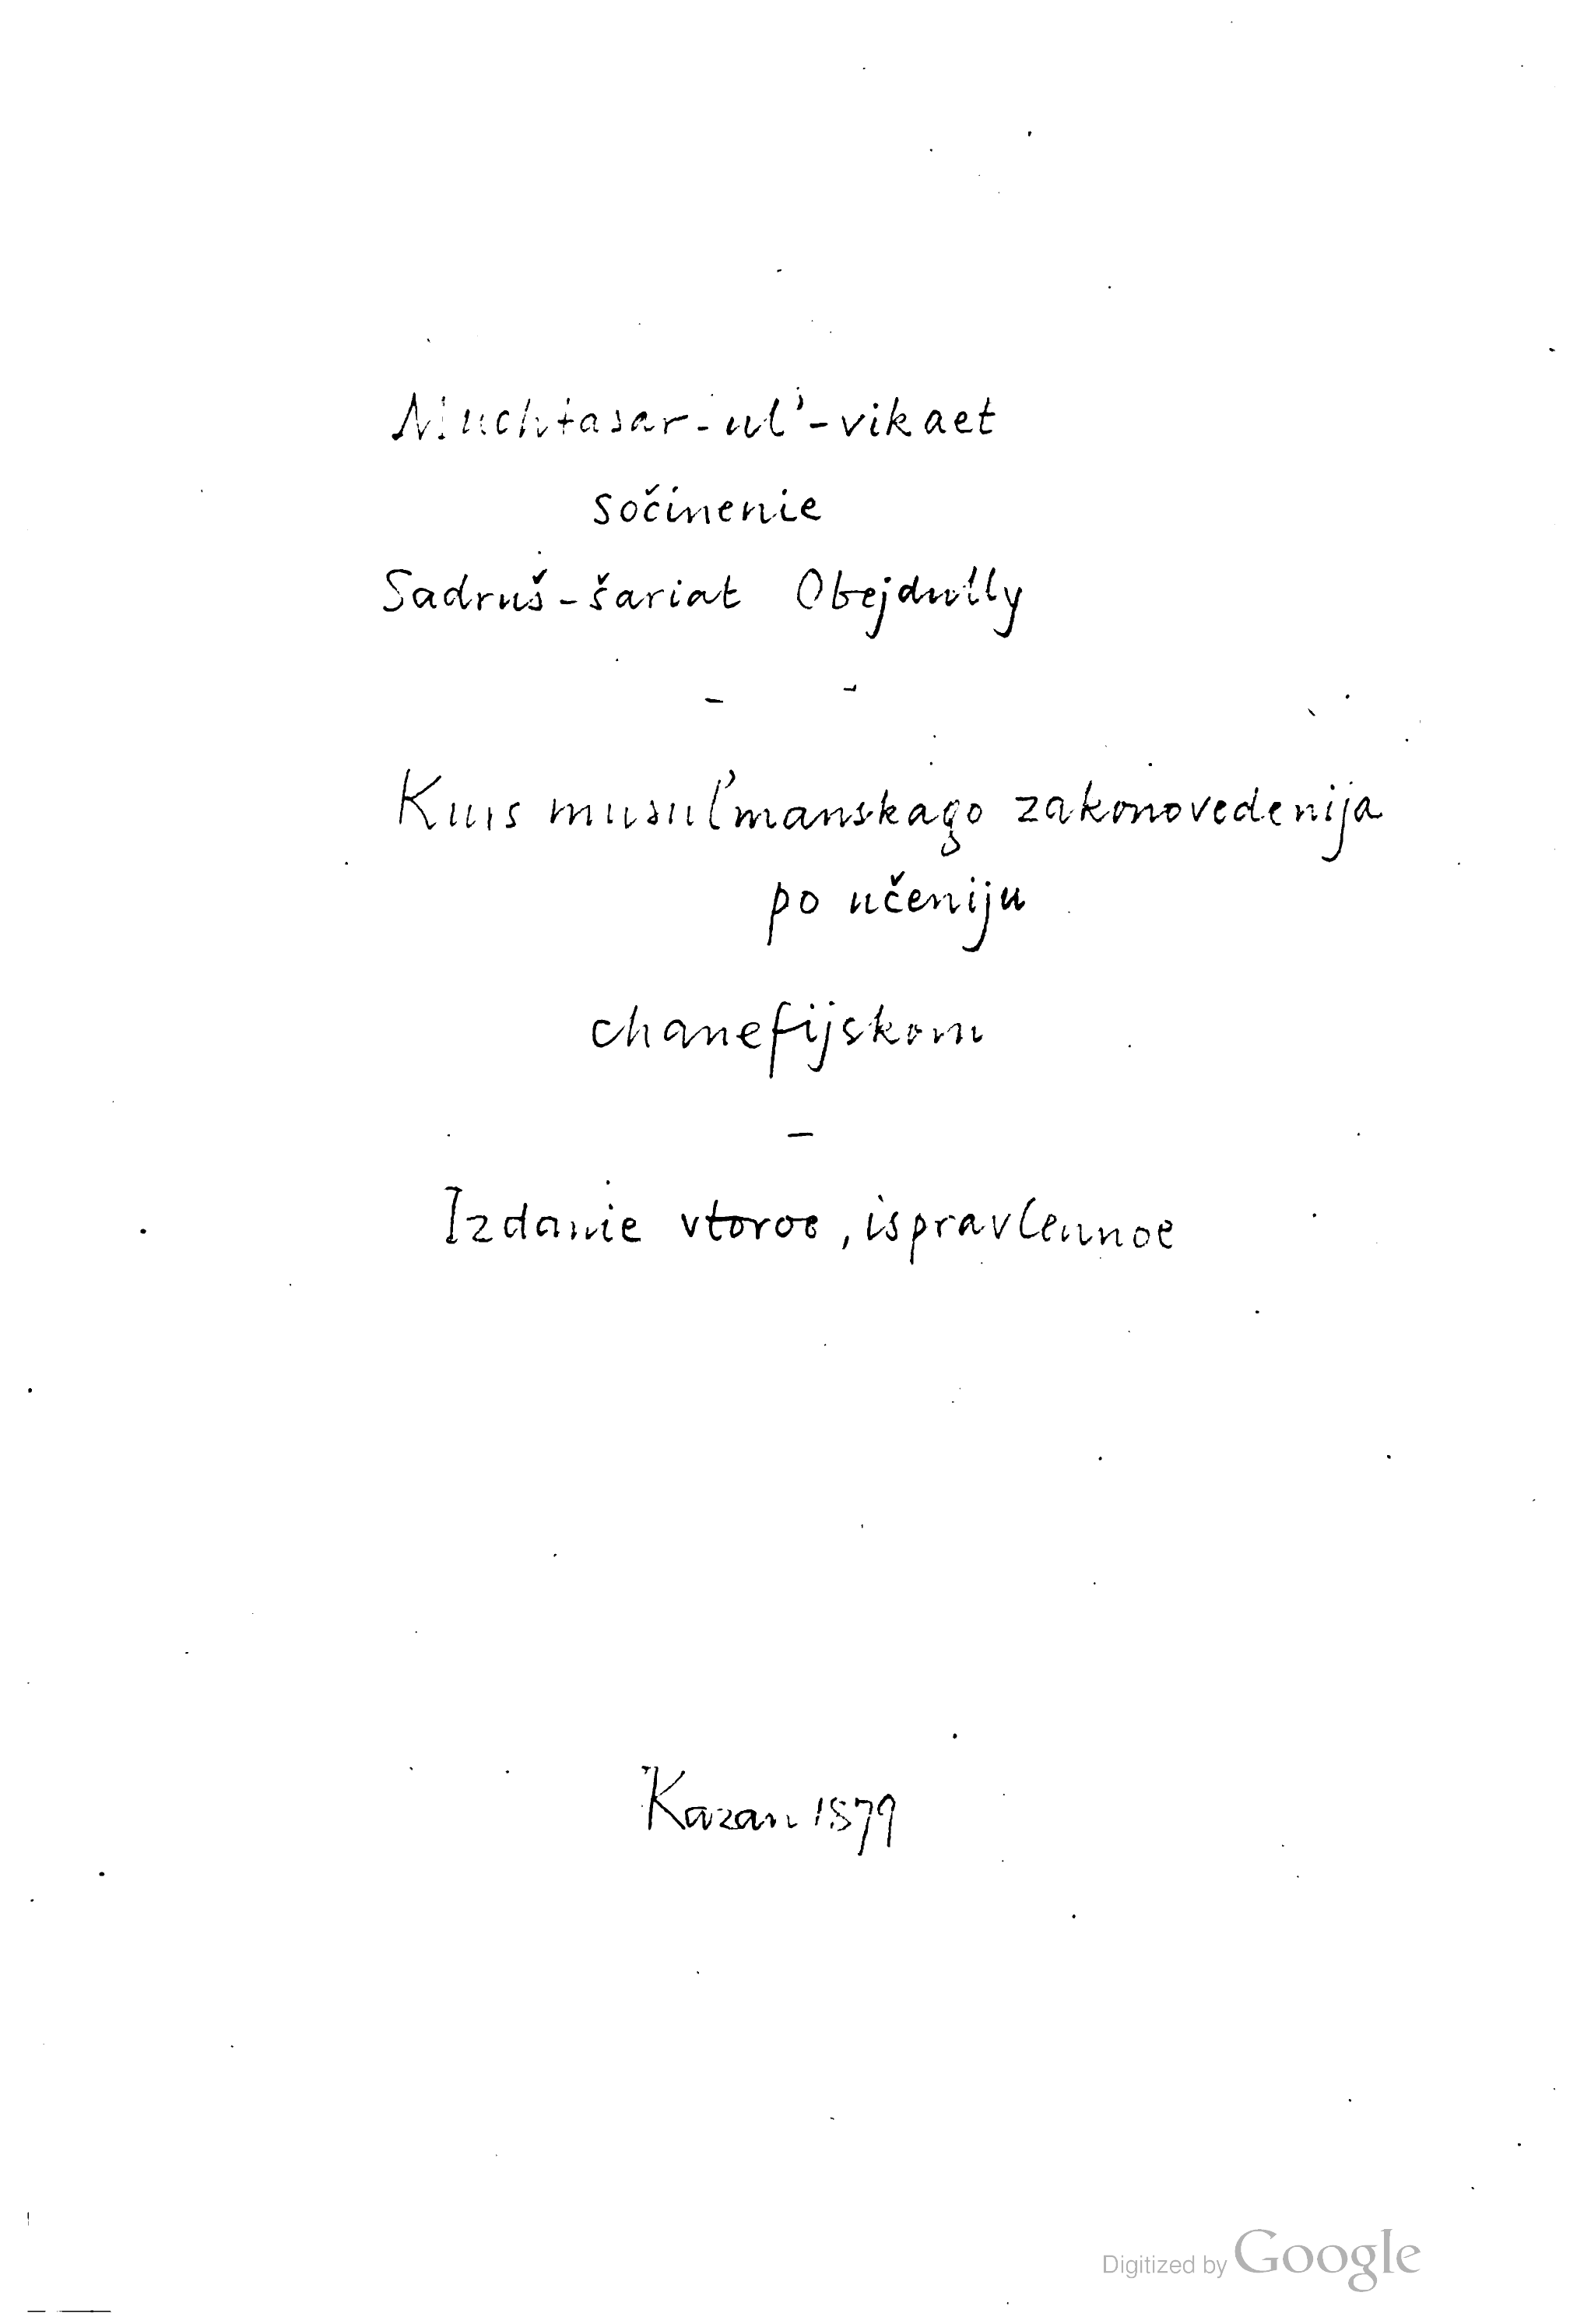 Muchtasar-ul'-vikaet
sočinenie
Sadruš-šariat Obejdully
Kurs musul'manskago zakonovedenija
po učeniju
chanefijskom
Izdanie vtoroe, ispravlennoe
Kazan 1879
Digitized by Google